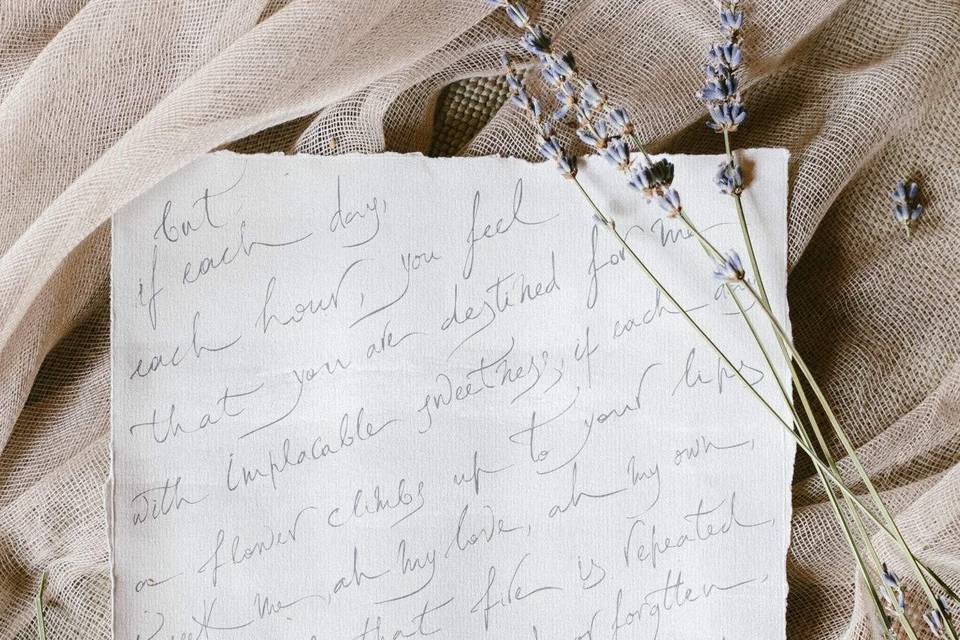 but
if each day,
each hour, you feel
that you are destined for me
with implacable sweetness, if each day
a flower climbs up to your lips
me, ah my love, ah my own,
that fire is repeated,
or forgotten,